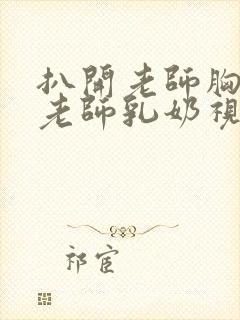 扒開老師胸
老師乳奶視
祁宦